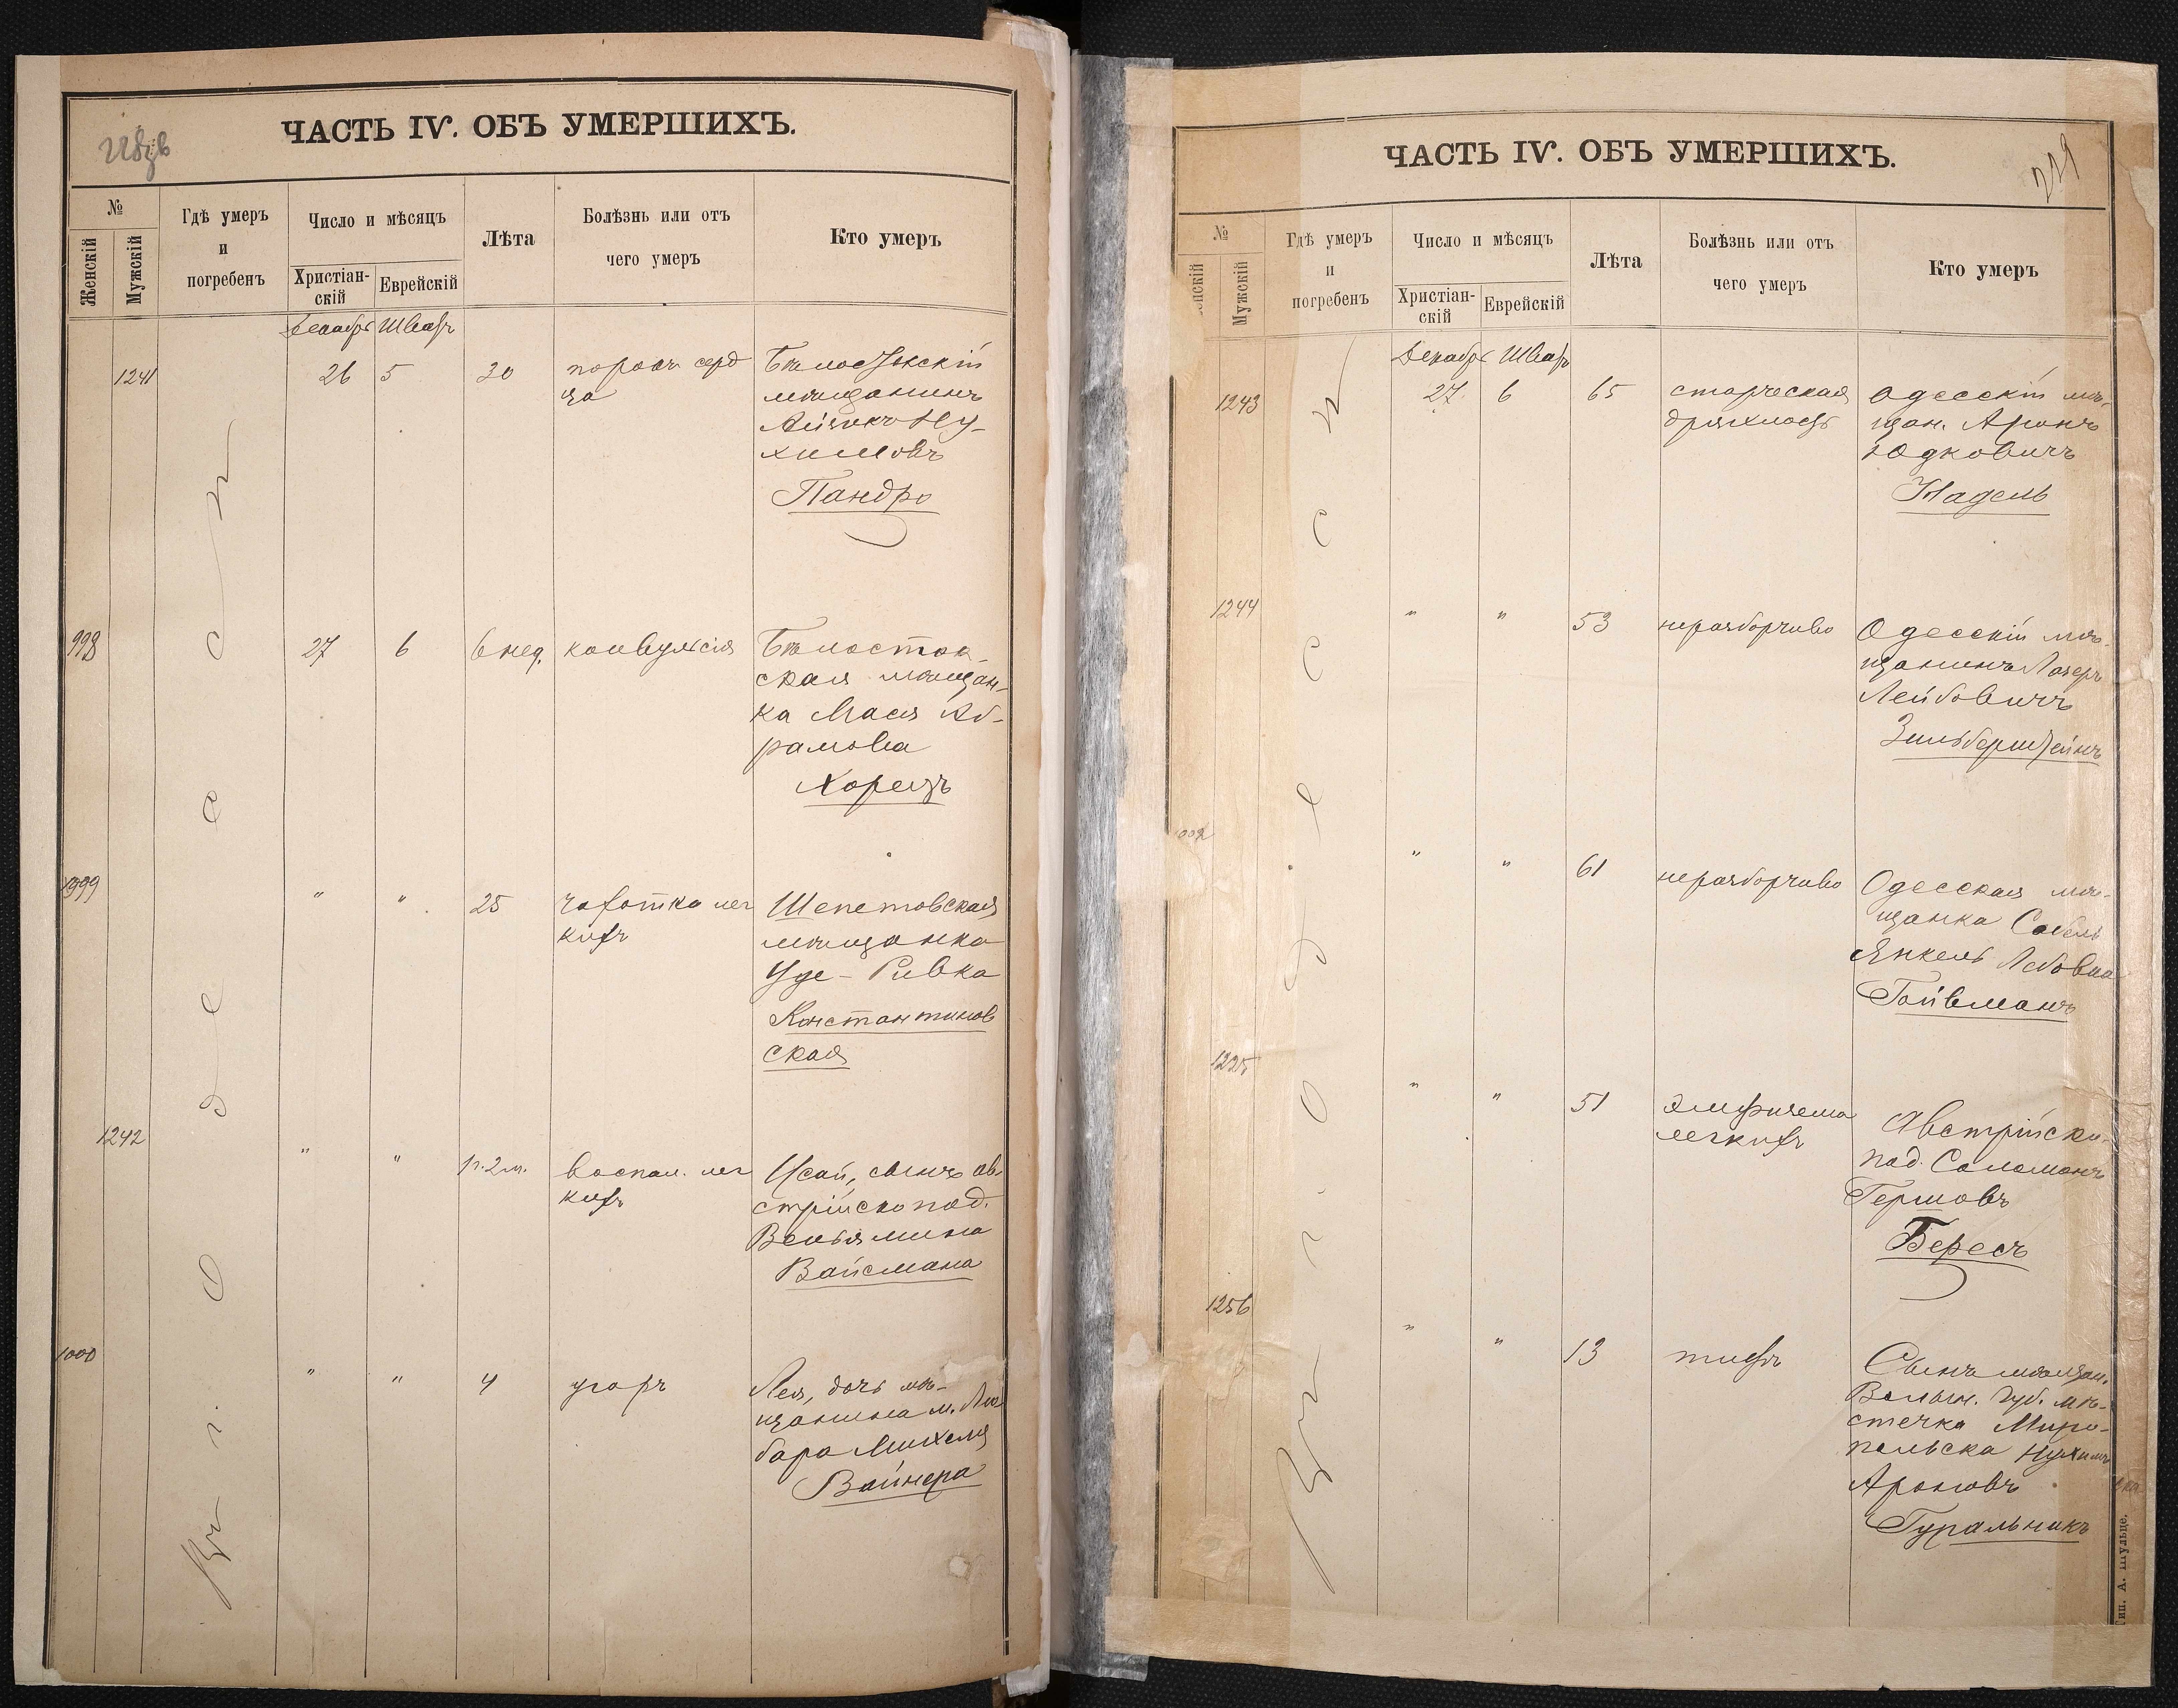 ЧАСТЬ IV. ОБЪ УМЕРШИХЪ.
№
Женскій
Мужскій
Гдѣ умеръ
и
погребенъ
Число и мѣсяцъ
Христіан-
скій
Еврейскій
Лѣта
Болѣзнь или отъ
чего умеръ
Кто умеръ
Декабрь Шватъ
1241 26 5 30 порокъ серд
ца
Бѣлостокскій
мѣщанинъ
Айзикъ Ну-
химовъ
Пандро
998 27 6 6 нед. конвульсія
Бѣлосток-
ская мѣщан-
ка Мася Аб-
рамова
Корецъ
999 " " 25 чахотка лег
кихъ
Шепетовская
мѣщанка
Уде-Ривка
Константинов
ская
1242 " " 1г.2м. воспал. лег
кихъ
Исай, сынъ ав-
стрійско под.
Веньямина
Вайсмана
1000 " " 4 угаръ
Лея, дочь мѣ-
щанина м. Лю
бара Михеля
Вайнера
Въ г. Одессѣ
ЧАСТЬ IV. ОБЪ УМЕРШИХЪ.
229
№
Мужскій
Гдѣ умеръ
и
погребенъ
Число и мѣсяцъ
Христіан-
скій
Еврейскій
Лѣта
Болѣзнь или отъ
чего умеръ
Кто умеръ
Декабрь Шватъ
1243 27 6 65 старческая
дряхлость
Одесскій мѣ-
щан. Аронъ
Юдковичъ
Надель
1244 " " 53 неразборчиво
Одесскій мѣ-
щанинъ Лазеръ
Лейбовичъ
Зильберштейнъ
" " 61 неразборчиво
Одесская мѣ-
щанка
Янкель Лебовна
Гойвманъ
1225 " " 51 Эмфизема
легкихъ
Австрійско-
под. Соломонъ
Гершовъ
Бересъ
1256 " " 13 тифъ
Сынъ мѣщан.
Волын. губ. мѣ-
стечка Миро-
польска Нухимъ
Ароновъ
Гуральникъ
Въ г. Одессѣ
Тип. А. Шульце.